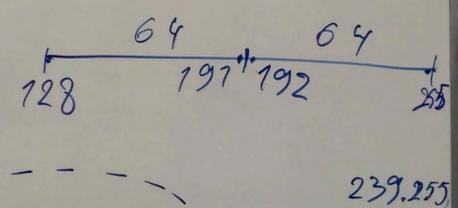 64 64
128 191 192 255
239.255